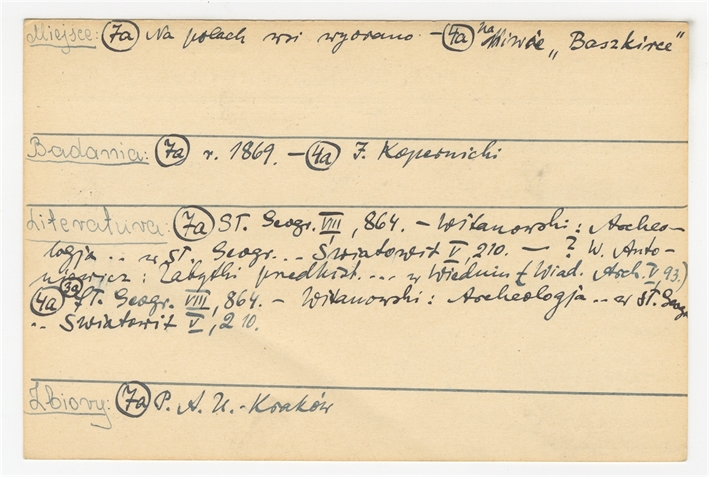 Miejsce: (7a) Na polach wsi wyorano – (4a) na niwie „Baszkirce"
Badania: (7a) r. 1869. – (4a) J. Kopernicki
Literatura: (7a) St. Geogr. VIII, 864. – Witanowski: Archeo-
logja .. w St. Geogr... Światowit V, 210. — ? W. Anto-
niewicz: Zabytki predhist... w Wiedniu (Wiad. Arch. V 93.)
(4a) (3a) St. Geogr. VIII, 864. – Witanowski: Archeologja .. w St. Geogr
.. Światowit V, 210.
Zbiory: (7a) P. A. U. - Kraków